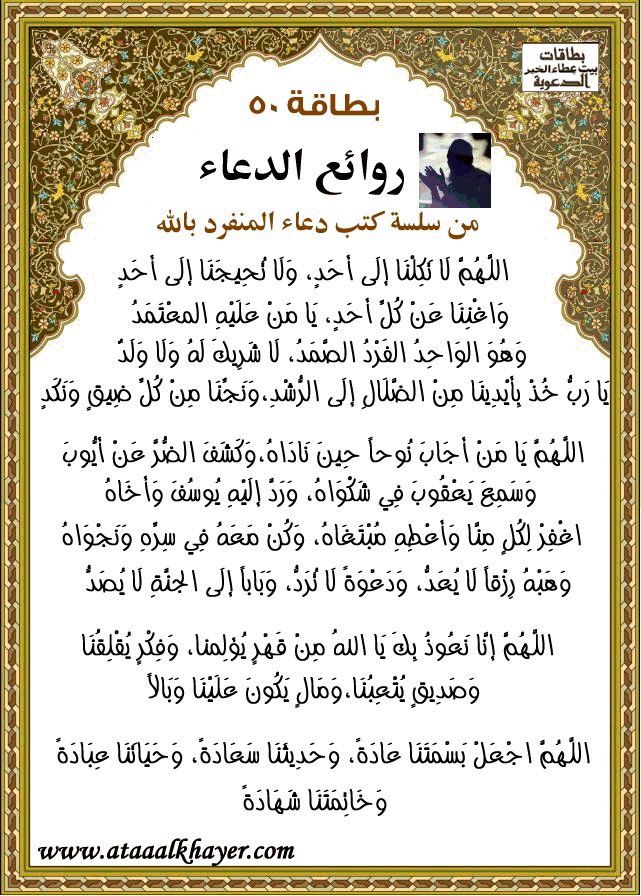 بطاقات
بيت عطاء الخير
الدعوية
بطاقة ٥٠
روائع الدعاء
من سلسة كتب دعاء المنفرد بالله
اللَّهُمَّ لَا تَكِلْنَا إلَى أحَدٍ، وَلَا تُحِيجَنَا إلَى أحَدٍ
وَاغْنِنَا عَنْ كُلِّ أحَدٍ، يَا مَنْ عَلَيْهِ المعْتَمَدُ
وَهُوَ الوَاحِدُ الفَرْدُ الصَّمَدُ، لَا شَرِيكَ لَهُ وَلَا وَلَدٌ
يَا رَبُّ خُذْ بِأيْدِينَا مِنْ الضَّلَالِ إلَى الرُّشْدِ،وَنَجِّنَا مِنْ كُلِّ ضِيقٍ وَنَكَدٍ
اللَّهُمَّ يَا مَنْ أجَابَ نُوحاً حِينَ نَادَاهُ،وَكَشَفَ الضُّرَّ عَنْ أيُّوبَ
وَسَمِعَ يَعْقُوبَ فِي شَكْوَاهُ، وَرَدَّ إلَيْهِ يُوسُفَ وَأخَاهُ
اغْفِرْ لِكُلٍ مِنَّا وَأعْطِهِ مُبْتَغَاهُ، وَكُنْ مَعَهُ فِي سِرِّهِ وَنَجْوَاهُ
وَهَبْهُ رِزْقاً لَا يُعَدُّ، وَدَعْوَةً لَا تُرَدُّ، وَبَاباً إلَى الجنَّةِ لَا يُصَدُّ
اللَّهُمَّ إنَّا نَعُوذُ بِكَ يَا اللهُ مِنْ قَهْرٍ يُؤلِمنا، وَفِكْرٍ يُقْلِقُنَا
وَصَدِيقٍ يُتْعِبُنَا،وَمَالٍ يَكُونَ عَلَيْنَا وَبَالاً
اللَّهُمَّ اجْعَلْ بَسْمَتَنَا عَادَةً، وَحَدِيثَنَا سَعَادَةً، وَحَيَاتَنَا عِبَادَةً
وَخَاتِمَتَنَا شَهَادَةً
www.ataaalkhayer.com